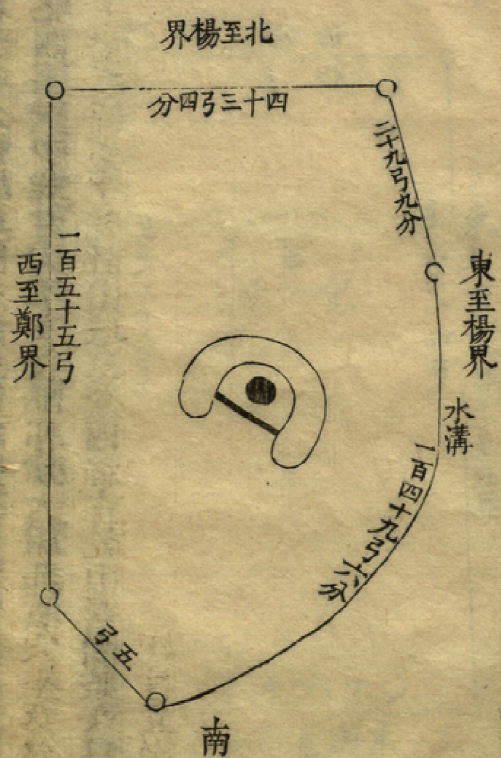 北至楊界
四十三弓四分
二十九弓九分
東至楊界
水溝
一百四十九弓六分
南
五弓
一百五十五弓
西至鄭界